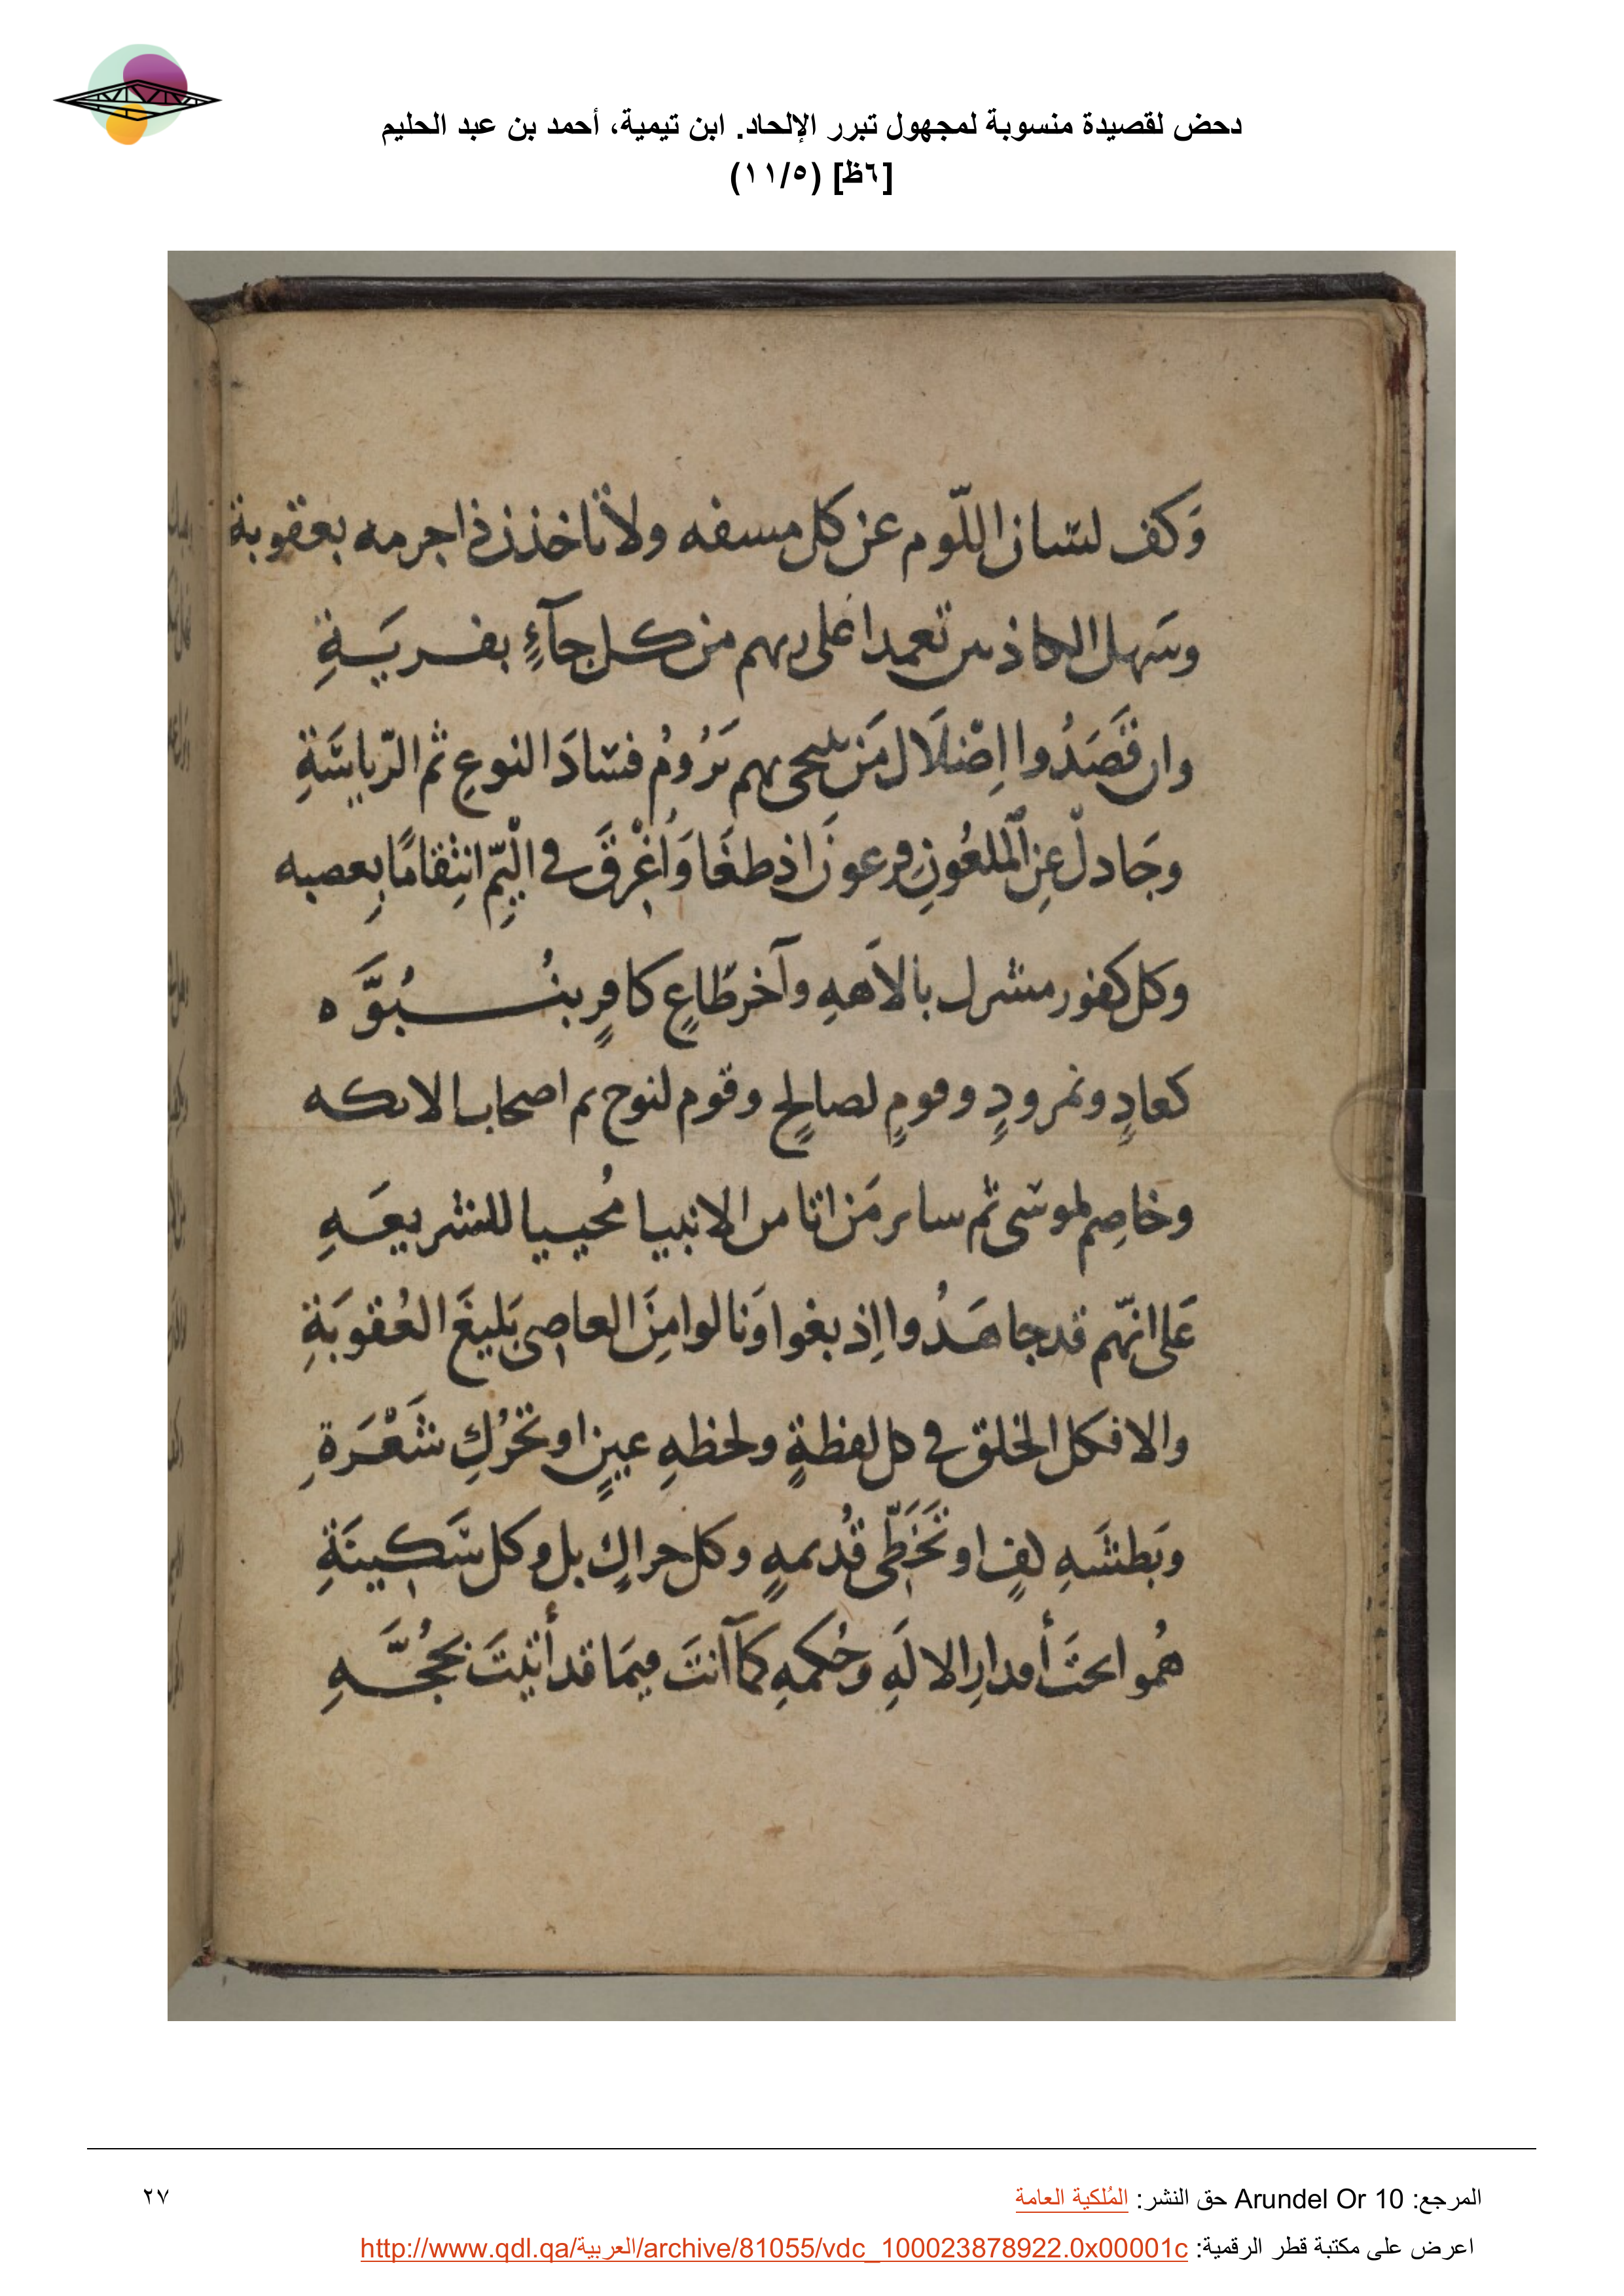 دحض لقصيدة منسوبة لمجهول تبرر الإلحاد. ابن تيمية، أحمد بن عبد الحليم
[٦ظ] (١١/٥)
وَكف لسان اللّوم عن كل مسفه ولا تاخذن ذا جرمه بعقوبة
وسَهل الكاذبين تعمدا على ربهم من كل جآءٍ بفريَةِ
وان قَصَدُوا اِضْلَال مَن يهم يَرُومُ فسَادَ النوعِ ثم الرّياسَةِ
وجَادلْ عنِ الملعُونِ فرعونَ اذ طغَا وَاُغْرِقَ في الْيَمِّ انتِقامًا بِعصبه
وكل كفور مشرك بالاَهه وآخر طَاعٍ كافرٍ بنُبُوَّه
كعادٍ ونمرودٍ وقومٍ لصالحٍ وقوم لنوح ثم اصحاب الايكه
وخاصِم لموسَى ثم سائر مَن اتا من الانبيا مُحييا للشريعَهِ
عَلى انهّم قد جاهَدُوا اِذ بغوا وَنالوا مِنَ العاصِى بَليغَ العُقوبَةِ
والا فكل الخلق في كل لفظةٍ ولحظهِ عينٍ او تحرُّكِ شَعْرَةِ
وبَطشَهِ كفٍ او تَخَطِّى قُديمهٍ وكل حراكٍ بل وكل سَكِينَةِ
هُموا تحتَ أقدارِ الالَهِ وحُكمهِ كمآ انتَ فيمَا قد أتيتَ بحُجَّهِ
المرجع: Arundel Or 10 حق النشر: المُلكية العامة
٢٧
اعرض على مكتبة قطر الرقمية: http://www.qdl.qa/العربية/archive/81055/vdc_100023878922.0x00001c